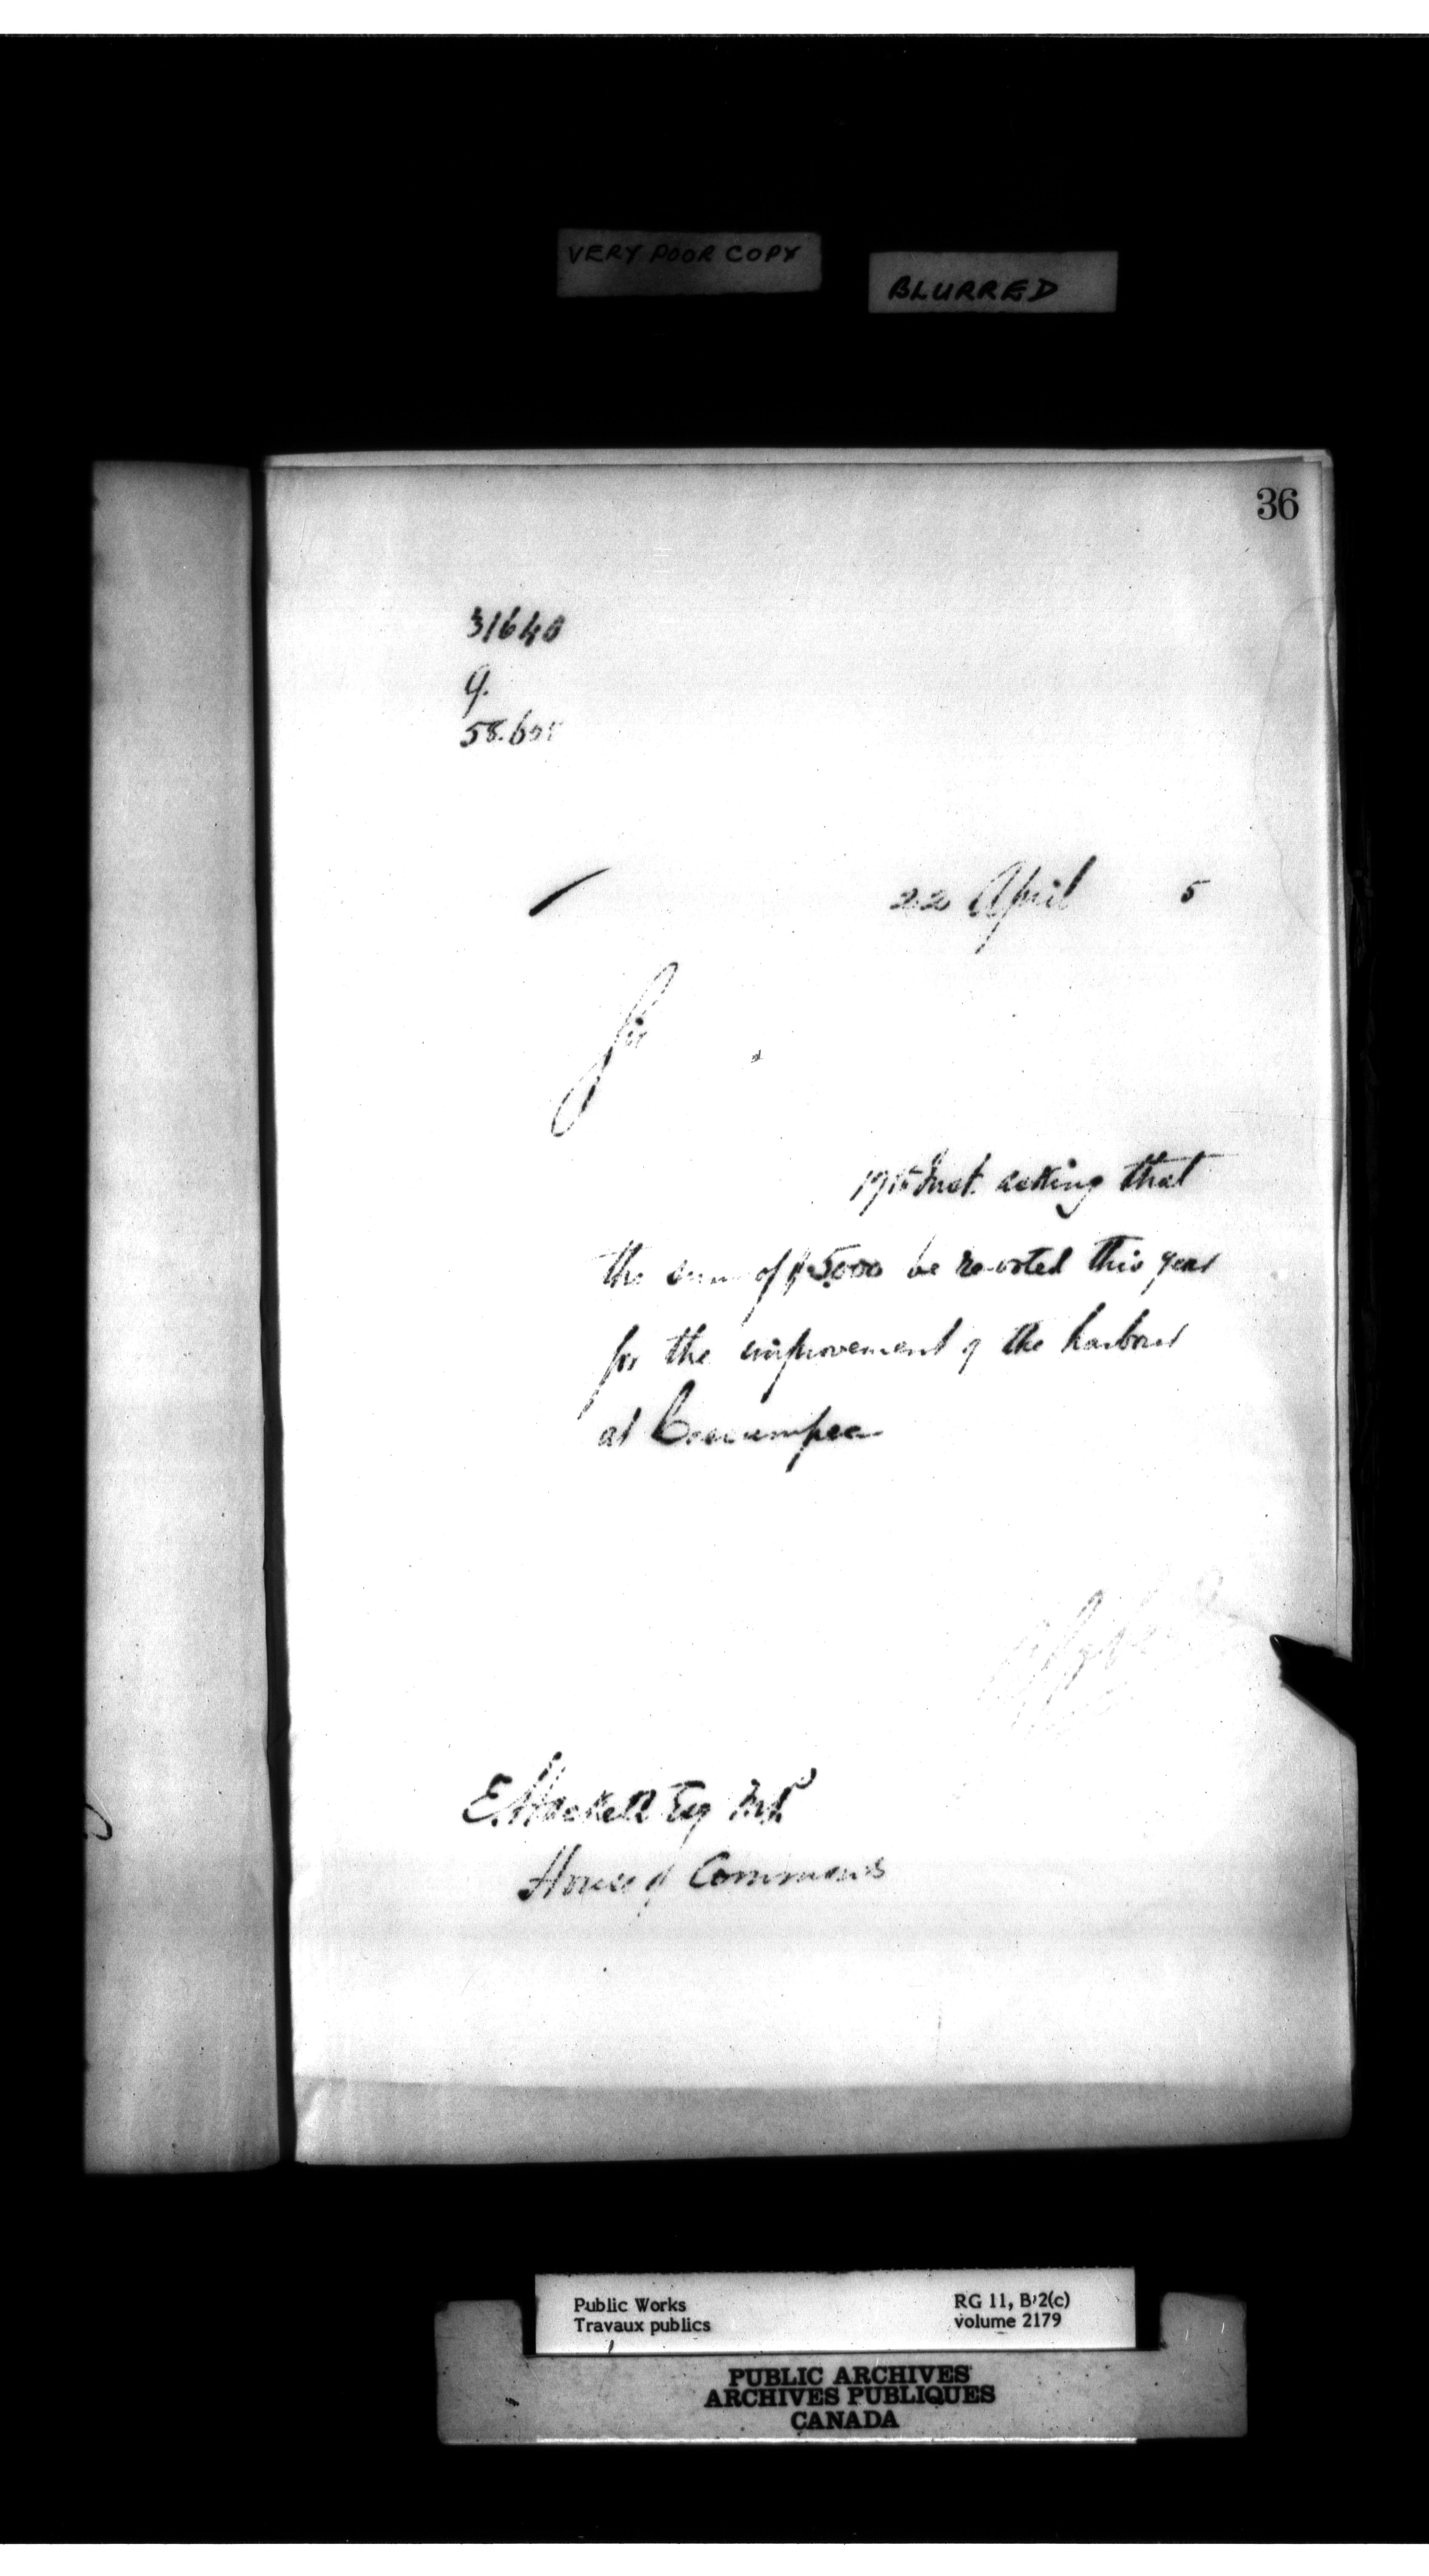 VERY POOR COPY
BLURRED
36
31640
9.
22 April 5
Sir
19th Inst. asking that
the sum of $5000 be revoted this year
for the improvement of the harbour
at Cascumpec
E. Hackett Esq M.P.
House of Commons
Public Works
Travaux publics
RG 11, B 2(c)
volume 2179
PUBLIC ARCHIVES
ARCHIVES PUBLIQUES
CANADA